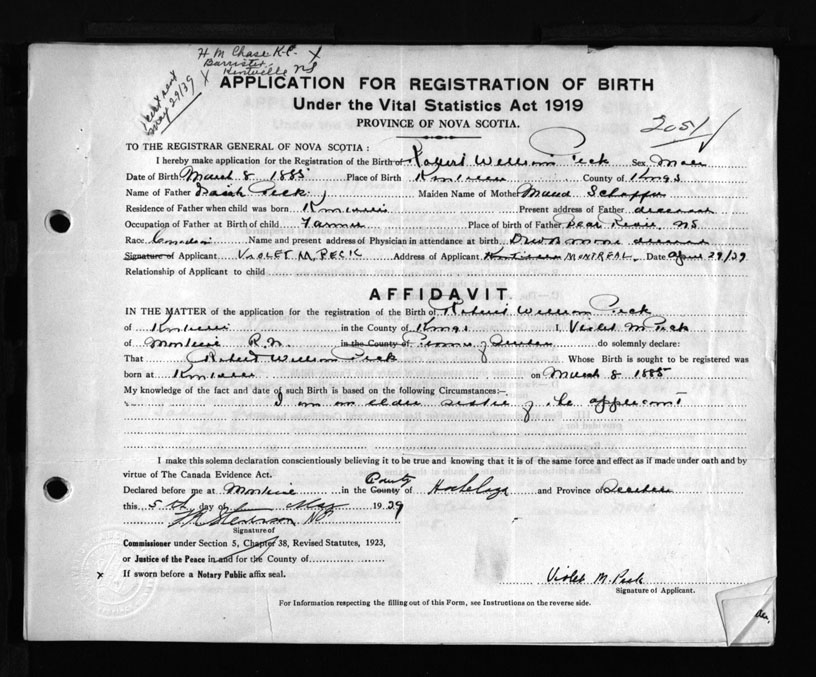 H M Chase K.C. X
Barrister
X Kentville NS
May 29/39
APPLICATION FOR REGISTRATION OF BIRTH
Under the Vital Statistics Act 1919
PROVINCE OF NOVA SCOTIA.
2051
TO THE REGISTRAR GENERAL OF NOVA SCOTIA :
I hereby make application for the Registration of the Birth of Robert William Peck Sex Male
Date of Birth March 8, 1885 Place of Birth County of Kings
Name of Father Peck Maiden Name of Mother Maud
Residence of Father when child was born Present address of Father deceased
Occupation of Father at Birth of child Farmer Place of birth of Father Bear River, NS
Race Canadian Name and present address of Physician in attendance at birth deceased
Signature of Applicant VIOLET M. PECK Address of Applicant MONTREAL. Date 29/39
Relationship of Applicant to child
AFFIDAVIT.
IN THE MATTER of the application for the registration of the Birth of Robert William Peck
of in the County of Kings I, Violet M Peck
of R.N. in the County of Province of Quebec do solemnly declare:
That Robert William Peck Whose Birth is sought to be registered was
born at on March 8 1885
My knowledge of the fact and date of such Birth is based on the following Circumstances:—
I am an elder sister of the applicant
I make this solemn declaration conscientiously believing it to be true and knowing that it is of the same force and effect as if made under oath and by
virtue of The Canada Evidence Act.
County
Declared before me at in the County of Hochelaga and Province of Quebec
this 5th day of May 1939
Signature of
Commissioner under Section 5, Chapter 38, Revised Statutes, 1923,
or Justice of the Peace in and for the County of
x If sworn before a Notary Public affix seal.
Violet M. Peck
Signature of Applicant.
For Information respecting the filling out of this Form, see Instructions on the reverse side.